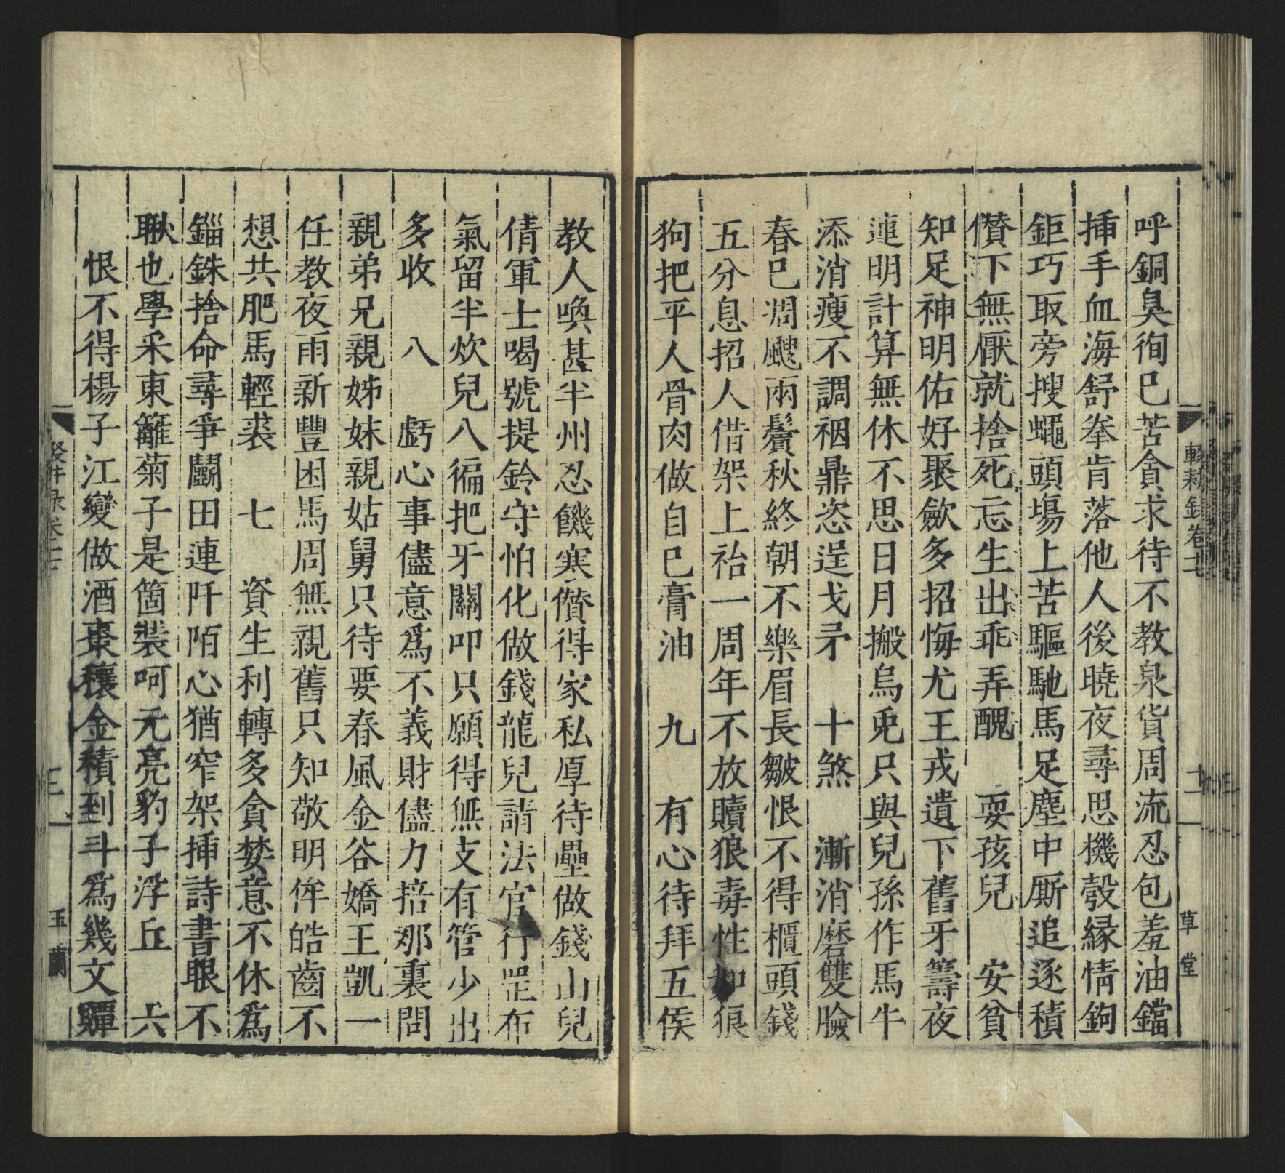 輟耕錄卷十七
草堂
呼銅臭徇已苦貪求待不教泉貨周流忍包羞油鐺
揷手血海舒拳肯落他人後曉夜尋思機彀縁情鉤
鉅巧取旁搜蠅頭塲上苦驅馳馬足塵中厮追逐積
儹下無厭就捨死忘生出乖弄醜　耍孩兒　安貧
知足神明佑好聚歛多招悔尤王戎遺下舊牙籌夜
連明計算無休不思日月搬烏兎只與兒孫作馬牛
添消瘦不調裀鼎恣逞戈矛　十煞　漸消磨雙臉
春已凋颼兩鬢秋終朝不樂眉長皺恨不得櫃頭錢
五分息招人借架上袷一周年不放贖狼毒性如狼
狗把平人骨肉做自已膏油　九　有心待拜五侯
教人喚甚半州忍饑寒儹得家私厚待壘做錢山兒
倩軍士喝號提鈴守怕化做錢龍兒請法官行罡布
氣留半炊兒八徧把牙關叩只願得無支有管少出
多收　八　虧心事儘意爲不義財儘力掊那裏問
親弟兄親姊妹親姑舅只待要春風金谷嬌王凱一
任教夜雨新豐困馬周無親舊只知敬明侔皓齒不
想共肥馬輕裘　七　資生利轉多貪婪意不休爲
錙銖捨命尋爭鬭田連阡陌心猶窄架揷詩書眼不
瞅也學采東籬菊子是箇裝呵元亮豹子浮丘　六
恨不得楊子江變做酒棗穰金積到斗爲幾文贉
玉蘭